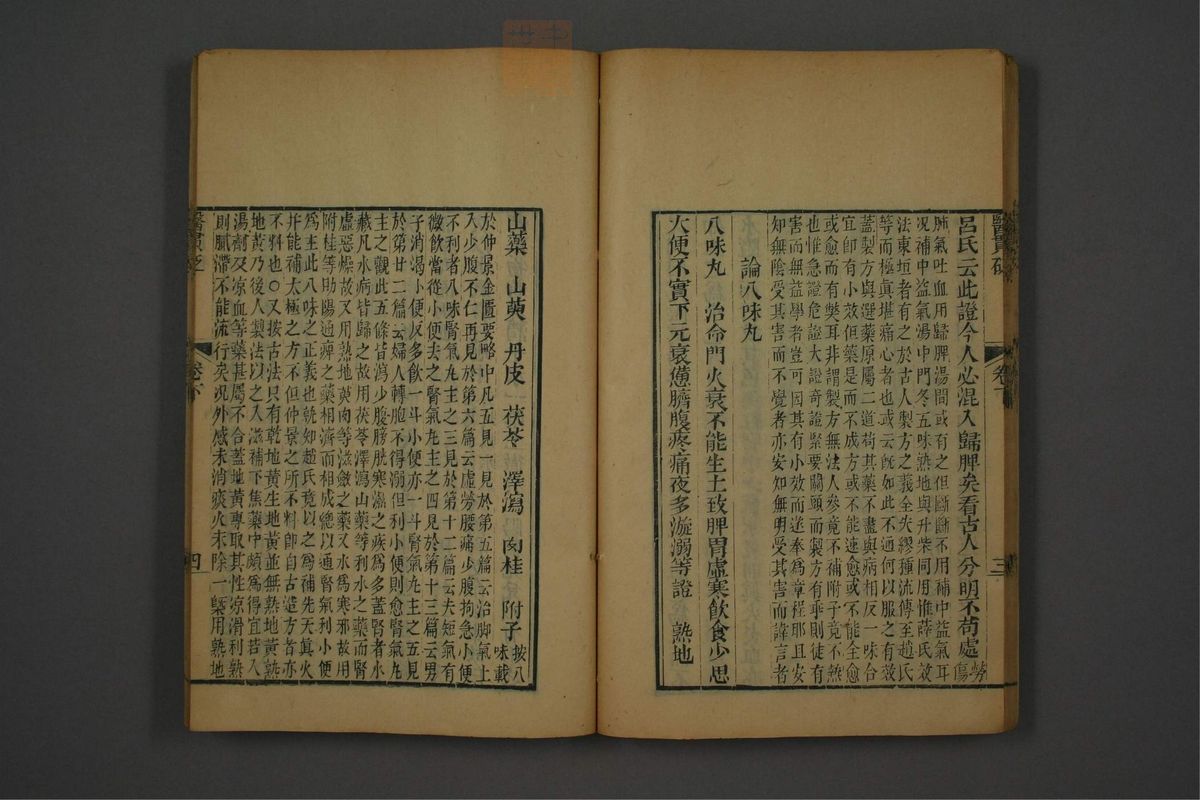 呂氏云此證今人必混入歸脾矣看古人分明不苟處
勞傷
肺氣吐血用歸脾湯間或有之但斷斷不用補中益氣耳
況補中益氣湯中門冬五味熟地與升柴同用惟薛氏效
法東垣者有之於古人製方之義全失繆種流傳至趙氏
等而極眞堪痛心者也或云旣如此不通何以服之有效
蓋製方與選藥原屬二道苟其藥不盡與病相反一味合
宜卽有小效但藥是而不成方或不能速愈或不能全愈
或愈而有弊耳非謂製方無法人參竟不補附子竟不熱
也惟急證危證大證奇證緊要關頭而製方有乖則徒有
害而無益學者豈可因其有小效而遂奉爲章程耶且安
知無陰受其害而不覺者亦安知無明受其害而諱言者
論八味丸
八味丸 治命門火衰不能生土致脾胃虛寒飲食少思
大便不實下元衰憊臍腹疼痛夜多漩溺等證 熟地
醫貫砭
卷下
三
山藥 山萸 丹皮 茯苓 澤瀉 肉桂 附子
按八味載
於仲景金匱要略中凡五見一見於第五篇云治脚氣上
入少腹不仁再見於第六篇云虛勞腰痛少腹拘急小便
不利者八味腎氣丸主之三見於第十二篇云夫短氣有
微飲當從小便去之腎氣丸主之四見於第十三篇云男
子消渴小便反多飲一斗小便亦一斗腎氣丸主之五見
於第廿二篇云婦人轉胞不得溺但利小便則愈腎氣丸
主之觀此五條皆瀉少腹膀胱寒濕之疾爲多蓋腎者水
藏凡水病皆歸之故用茯苓澤瀉山藥等利水之藥而腎
虛惡燥故又用熟地萸肉等滋斂之藥又水爲寒邪故用
附桂等助陽通痺之藥相濟而相成總以通腎氣利小便
爲主此八味之正義也孰知趙氏竟以之爲補先天眞火
幷能補太極之方不但仲景之所不料卽自古造方者亦
不料也○又按古法只有乾地黃生地黃並無熟地黃熟
地黃乃後人製法以之入滋補下焦藥中頗爲得宜若入
湯劑及凉血等藥甚屬不合蓋地黃專取其性凉滑利熟
則膩滯不能流行矣況外感未消痰火未除一槩用熟地
醫貫砭
卷下
四